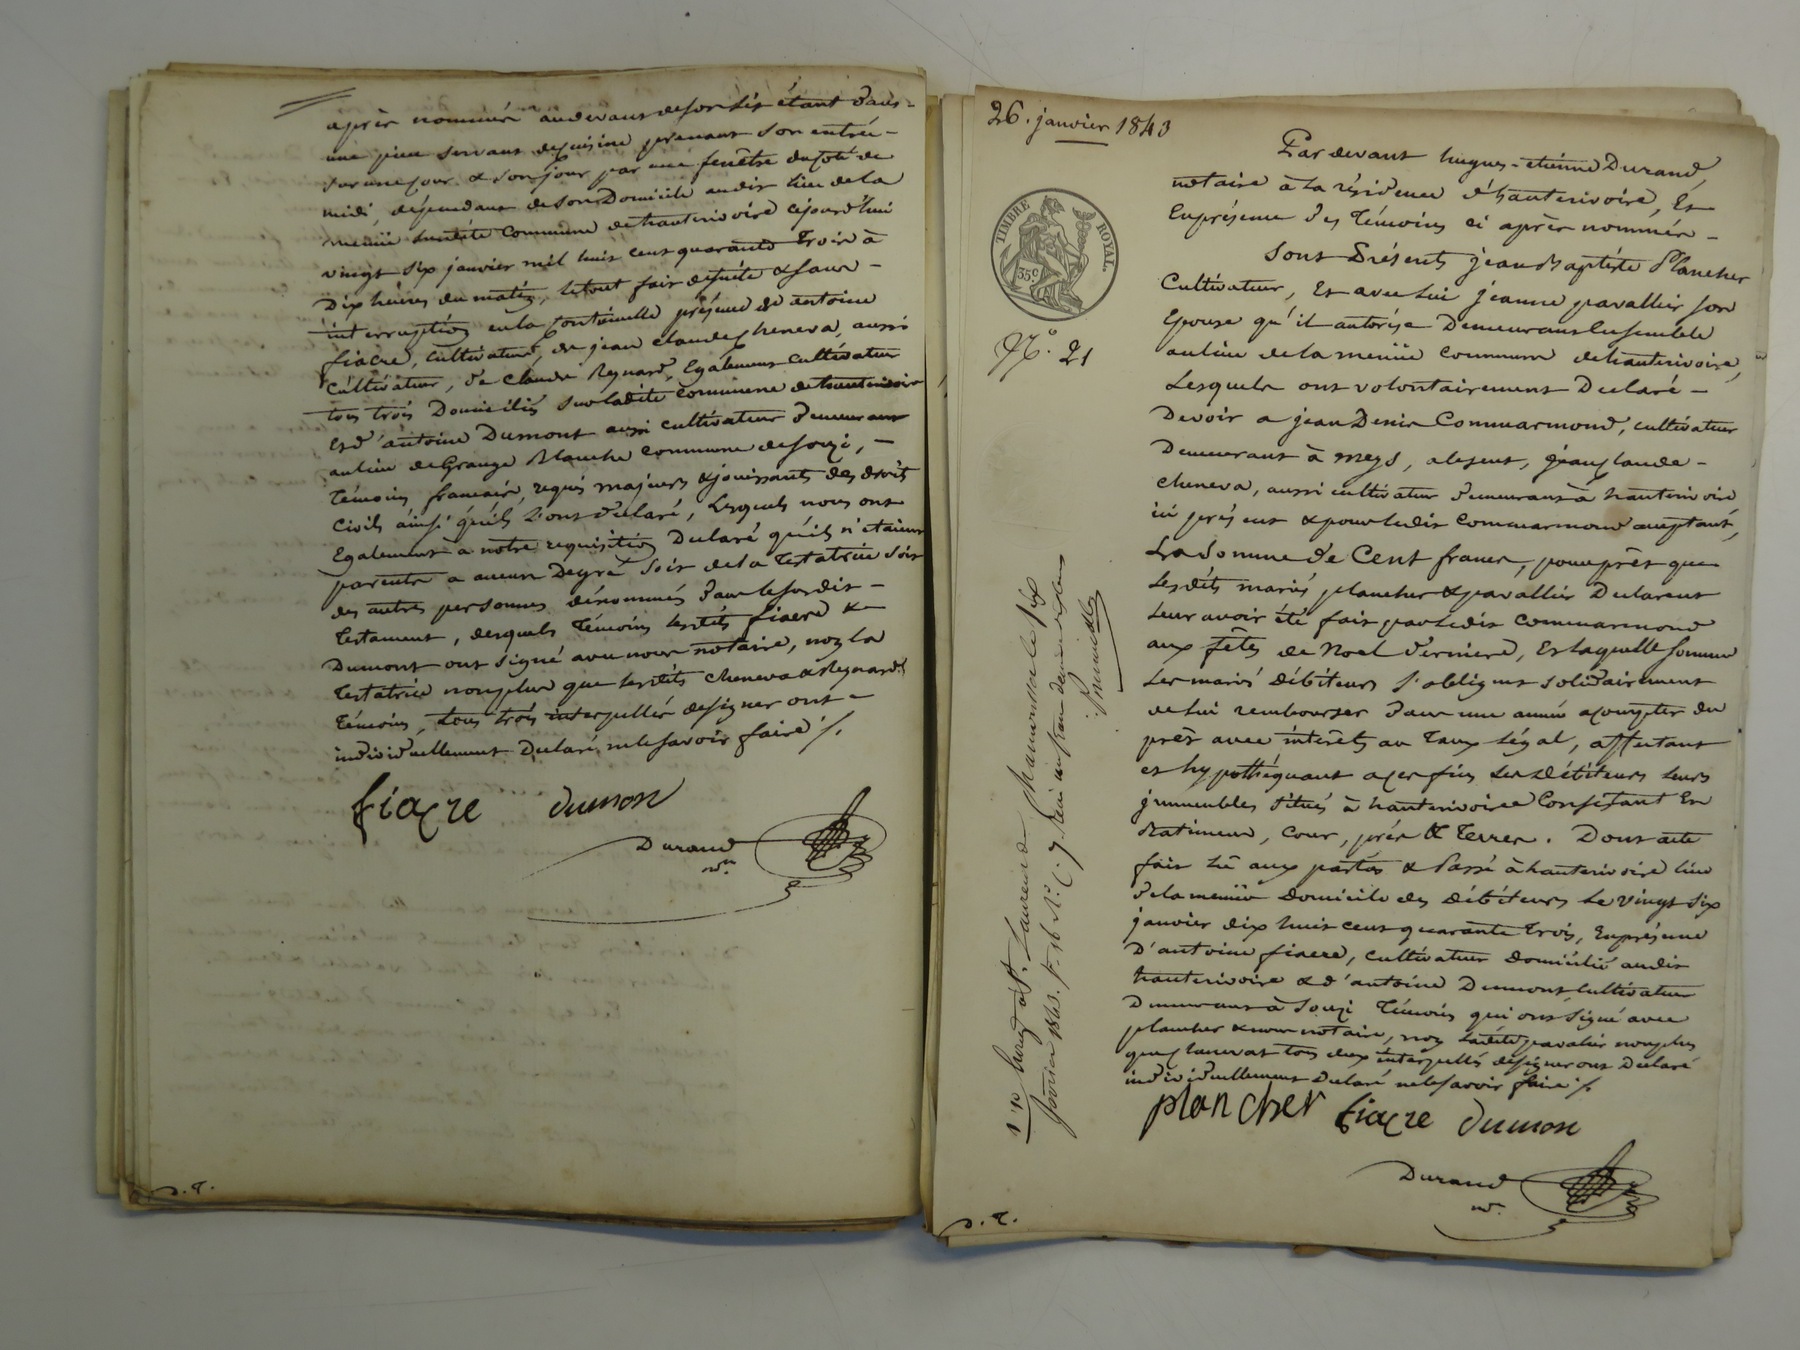 après nommés au devant de son lit étant dans
une pièce servant de cuisine prenant son entrée
sur une cour & son jour par une fenêtre du côté de
midi, dépendant de son Domicile audit lieu de la
menüe susdite Commune de hauterivoire cejourd'hui
vingt six janvier mil huit cent quarante Trois à
Dix heures du matin, le tout fait de suite & sans
interruption en la continuelle présence de antoine
fiacre, cultivateur, de jean claude cheneva, aussi
Cultivateur, de claude Reynard, Egalement cultivateur
tous trois Domiciliés sur ladite commune de hauterivoire
Et d'antoine Dumont aussi cultivateur demeurant
au lieu de Grange Blanche commune de souzi,
Témoins français, requis majeurs & jouissants des droits
Civils ainsi qu'ils l'ont déclaré, Lesquels nous ont
Egalement à notre requisition Declaré qu'ils n'etaient
parents a aucun Degré soit de la Testatrice soit
des autres personnes dénommés dans le susdit
Testament, desquels Témoins lesdits fiacre &
Dumont ont signé avec nous notaire, non la
Testatrice non plus que lesdits cheneva & Reynard
Témoins, tous trois interpellés de signer ont
individuellement Declaré ne le savoir faire ./.
fiacre dumon
Durand
nre.
D. T.
26. janvier 1843
TIMBRE ROYAL
35c
No. 21
Par devant hugues-etienne Durand,
notaire à la résidence d'hauterivoire, Et
En présence des Témoins ci après nommés
Sont Présents jean Baptiste Plancher
Cultivateur, Et avec lui jeanne pavallier son
Epouse qu'il autorise Demeurant Ensemble
au lieu de la menüe commune de hauterivoire,
Lesquels ont volontairement Declaré
Devoir a jean Denis Commarmond, cultivateur
Demeurant à meys, absent, jean claude
cheneva, aussi cultivateur demeurant à hauterivoire
ici présent & pour ledit Commarmond acceptant,
La somme de Cent francs, pour prêt que
Lesdits mariés plancher & pavallier Declarent
Leur avoir été fait par ledit commarmond
aux fêtes de Noel dernière, Et laquelle somme
Les mariés Débiteurs s'obligent solidairement
de lui rembourser dans une année a compter du
prêt avec intérêts au Taux légal, affectant
et hypothéquant a ces fins Les Débiteurs Leurs
immeubles situés à hauterivoire Consistant En
Batiment, Cour, prés & Terres. Dont acte
fait Lu aux parties & Passé à hauterivoire lieu
de la menüe Domicile des Débiteurs Le vingt six
janvier dix huit cent quarante Trois, En présence
D'antoine fiacre, cultivateur Domicilié audit
hauterivoire & d'antoine Dumont Cultivateur
Demeurant à souzi Témoins qui ont signé avec
plancher & nous notaire, non ladite pavalier non plus
que cheneva tous deux interpellés de signer ont Declaré
individuellement Declaré ne le savoir faire ./.
plancher fiacre dumon
Durand
nre.
D. T.
Enregé à St. Laurent de Chamousset le six
février 1843. fo 16 Ro. C. 7 Reçu un franc dix centimes